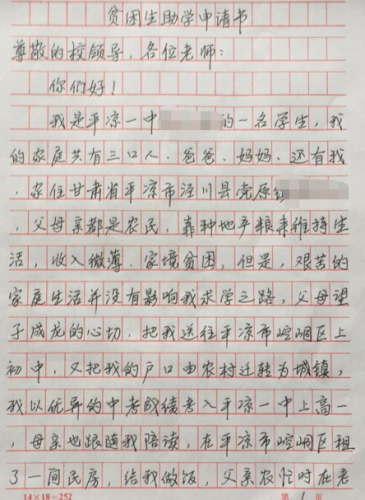 贫困生助学申请书
尊敬的校领导，各位老师：
你们好！
我是平凉一中 的一名学生，我
的家庭共有三口人，爸爸、妈妈、还有我
，家住甘肃省平凉市泾川县党原镇
，父母亲都是农民，靠种地产粮来维持生
活，收入微薄，家境贫困，但是，艰苦的
家庭生活并没有影响我求学之路，父母望
子成龙的心切，把我送往平凉市崆峒区上
初中，又把我的户口由农村迁转为城镇，
我以优异的中考成绩考入平凉一中上高一
，母亲也跟随我陪读，在平凉市崆峒区租
了一间民房，给我做饭，父亲农忙时在老
14×18=252 第 1 页